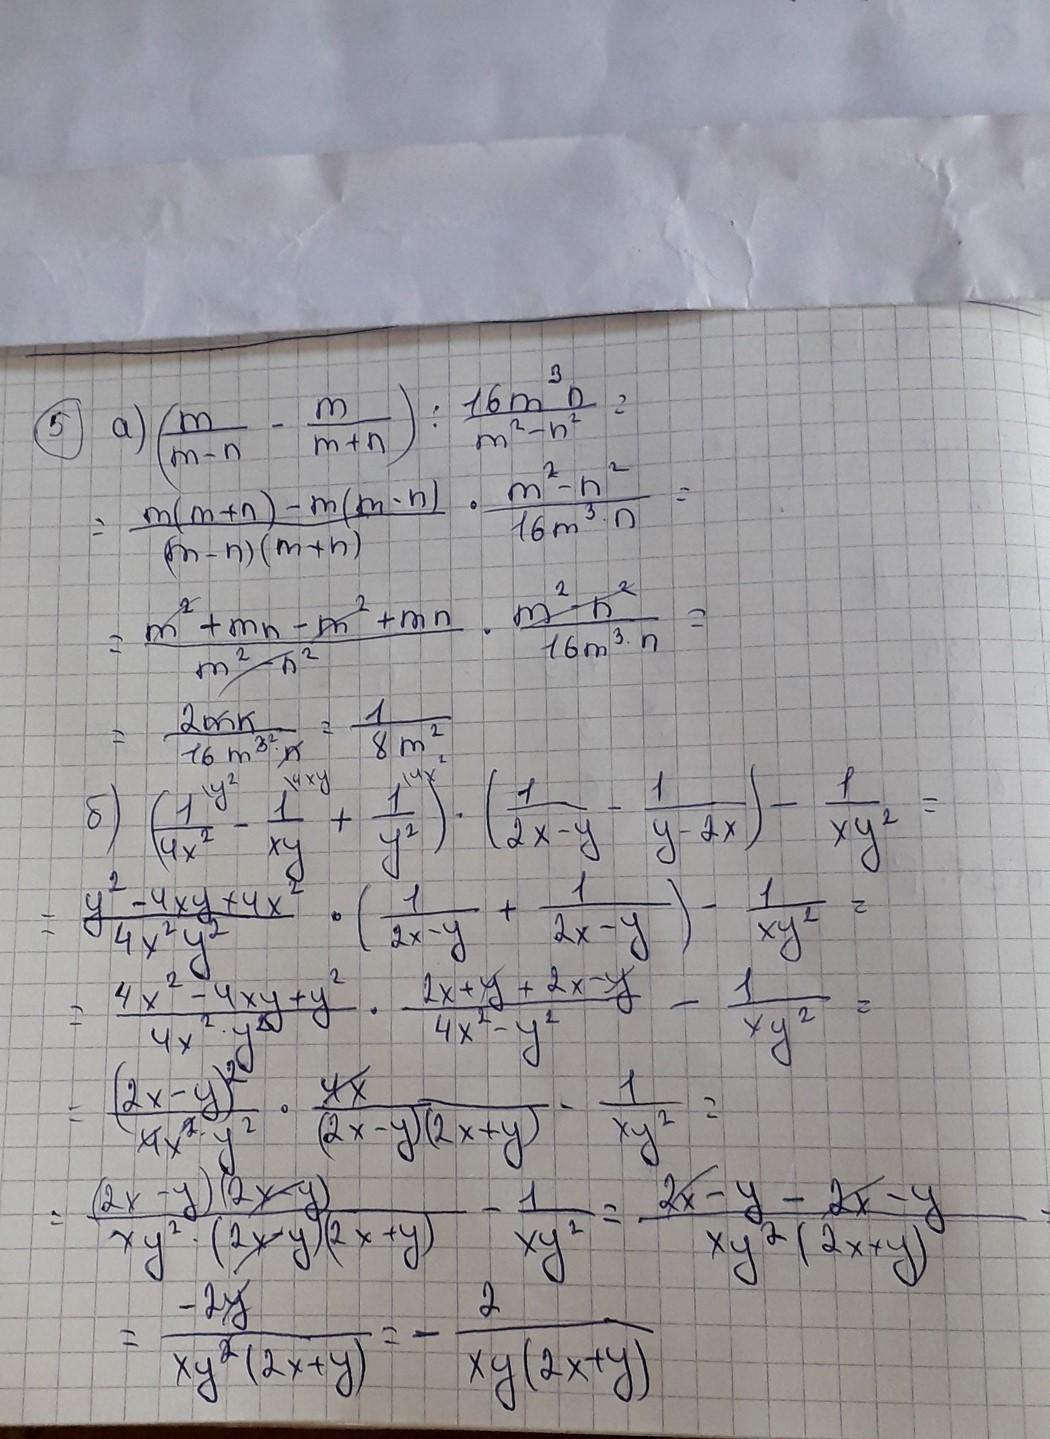 5 а) (m/(m-n) - m/(m+n)) : 16m³n/(m²-n²) =
= (m(m+n) - m(m-n))/((m-n)(m+n)) · (m²-n²)/(16m³·n) =
= (m²+mn-m²+mn)/(m²-n²) · (m²-n²)/(16m³·n) =
= 2mn/(16m³²·n) = 1/(8m²)
б) (1\y²/(4x²) - 1\4xy/(xy) + 1\4x²/(y²)) · (1/(2x-y) - 1/(y-2x)) - 1/(xy²) =
= (y²-4xy+4x²)/(4x²y²) · (1/(2x-y) + 1/(2x-y)) - 1/(xy²) =
= (4x²-4xy+y²)/(4x²·y²) · (2x+y+2x-y)/(4x²-y²) - 1/(xy²) =
= (2x-y)²/(4x²·y²) · 4x/((2x-y)(2x+y)) - 1/(xy²) =
= (2x-y)(2x-y)/(xy²·(2x-y)(2x+y)) - 1/(xy²) = (2x-y-2x-y)/(xy²(2x+y)) =
= -2y/(xy²(2x+y)) = - 2/(xy(2x+y))